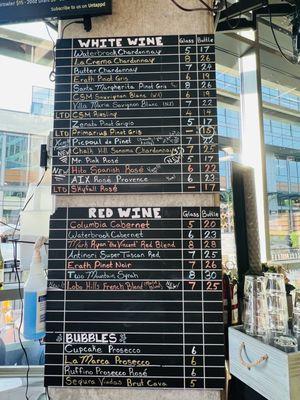 Subscribe to us on Untappd
WHITE WINE Glass Bottle
Waterbrook Chardonnay 5 17
La Crema Chardonnay 8 26
Butter Chardonnay 7 24
Erath Pinot Gris 6 19
Santa Margherita Pinot Gris 8 26
CSM Sauvignon Blanc 6 19
Villa Maria Sauvignon Blanc 7 22
LTD CSM Riesling 4 14
Zenato Pinot Grigio 5 17
LTD Primarius Pinot Gris - 15
Picpoul de Pinet 7
Chalk Hill Sonoma Chardonnay 7 25
Mr. Pink Rosé 5 17
New Hito Spanish Rosé 6
AIX Rosé Provence 6 23
LTD Skyfall Rosé - 17
RED WINE Glass Bottle
Columbia Cabernet 5 20
Waterbrook Cabernet 6 23
Mark Ryan "The Vincent" Red Blend 8 28
Antinori Super Tuscan Red 7 25
Erath Pinot Noir 7 26
Two Mountain Syrah 8 30
LTD Lobo Hills French Blend New 7 25
BUBBLES
Cupcake Prosecco 6
La Marca Prosecco 6
Ruffino Prosecco Rosé 6
Segura Viudas Brut Cava 5